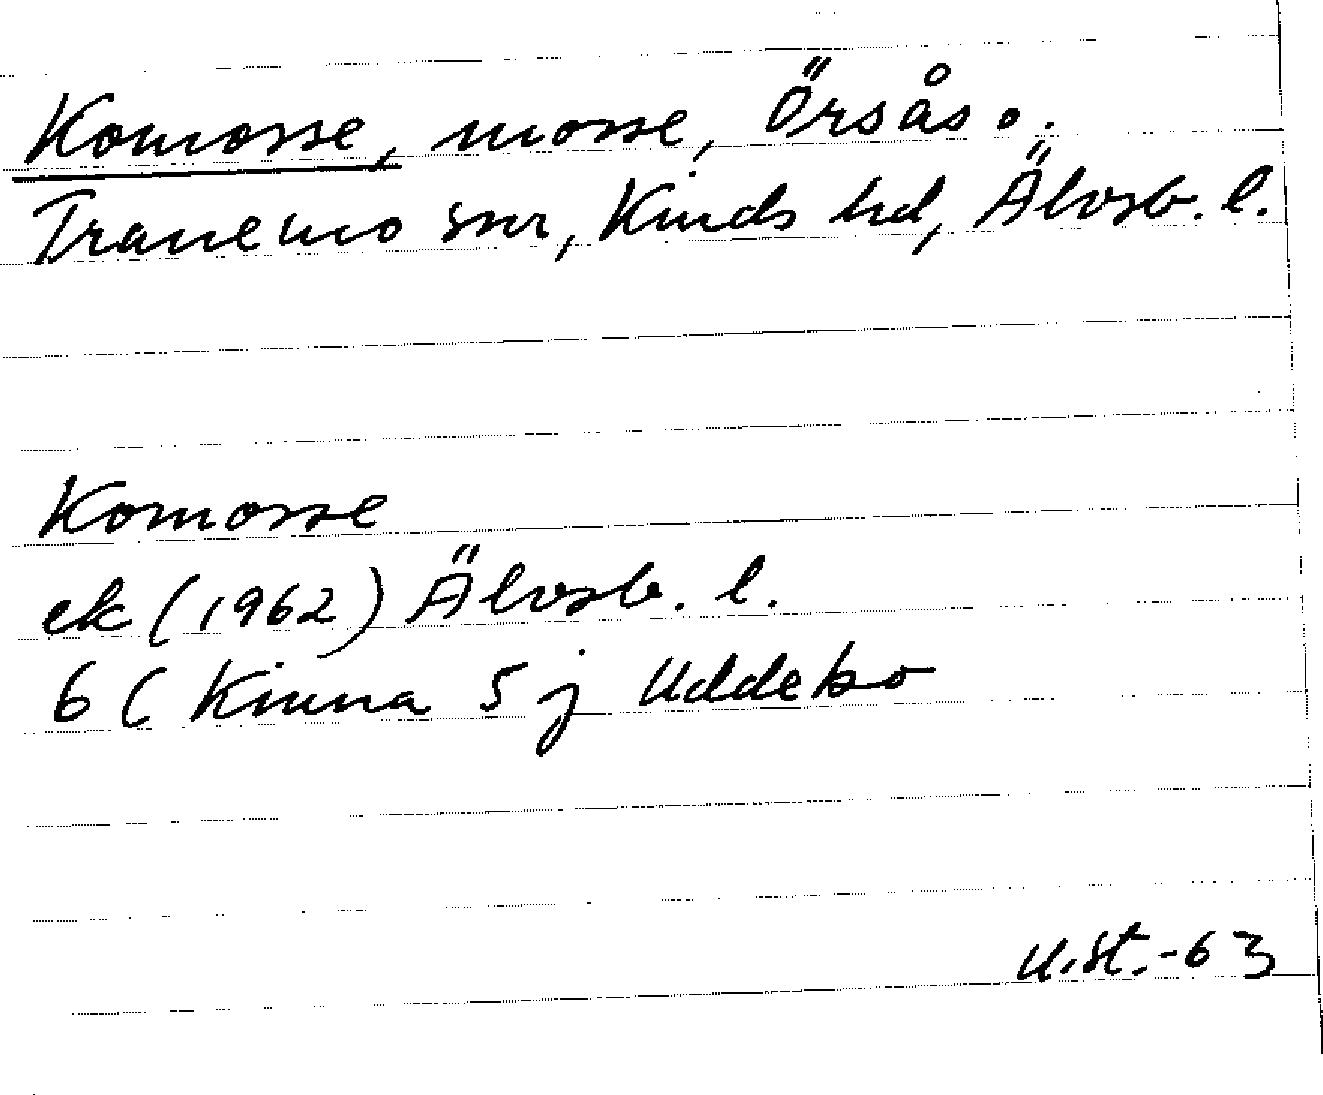 Komosse, mosse, Örsås o.
Tranemo snr, Kinds hd, Älvsb. l.
Komosse
ek (1962) Älvsb. l.
6 ( Kinna 5 j Uddebo
U.St.-63